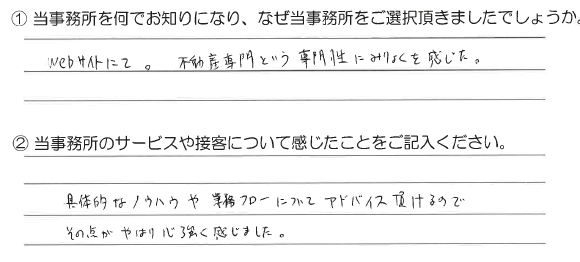 ① 当事務所を何でお知りになり、なぜ当事務所をご選択頂きましたでしょうか。
Webサイトにて。 不動産専門という専門性にみりょくを感じた。
② 当事務所のサービスや接客について感じたことをご記入ください。
具体的なノウハウや業務フローについてアドバイス頂けるので
その点がやはり心強く感じました。